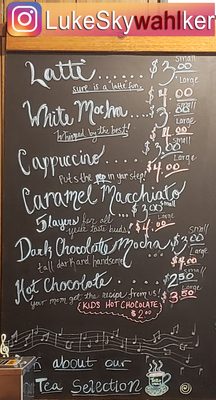 LukeSkywahlker
Latte ...... $3.00 Small
sure is a latte fun
Large
White Mocha ... $4.00
$3.00 Small
Whipped by the best! $4.00 Large
Cappuccino ..... $3.00 Small
Puts the pep in your step! $4.00 Large
Caramel Macchiato
5 layers for all ... $3.00 Small
your taste buds! $4.00 Large
Dark Chocolate Mocha ... $3.00 Small
tall dark and handsome $4.00 Large
Hot Chocolate ..... $2.50 Small
your mom got the recipe from us! $3.50 Large
KIDS HOT CHOCOLATE
$2.00
about our
Tea Selection